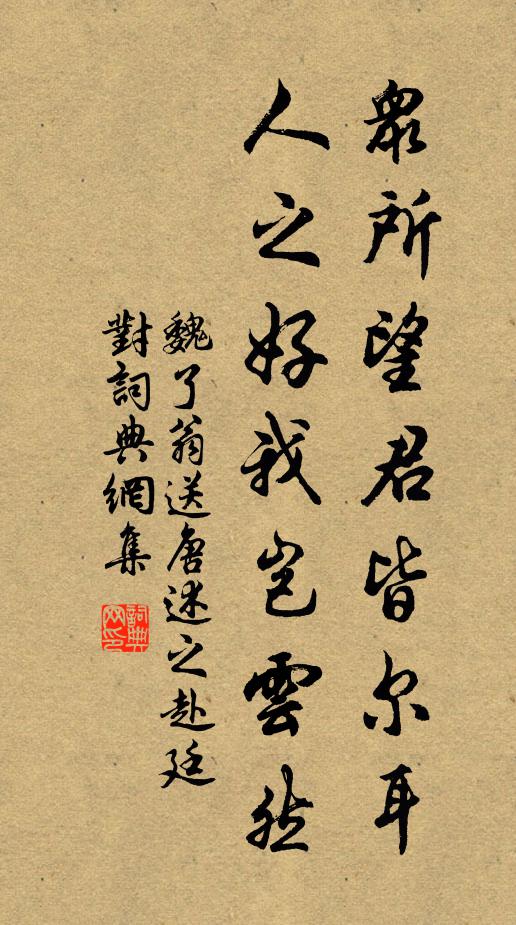 眾所望君皆尔耳
人之好我豈雲然
魏了翁送唐述之赴廷
對詞典網集
詞典
网印